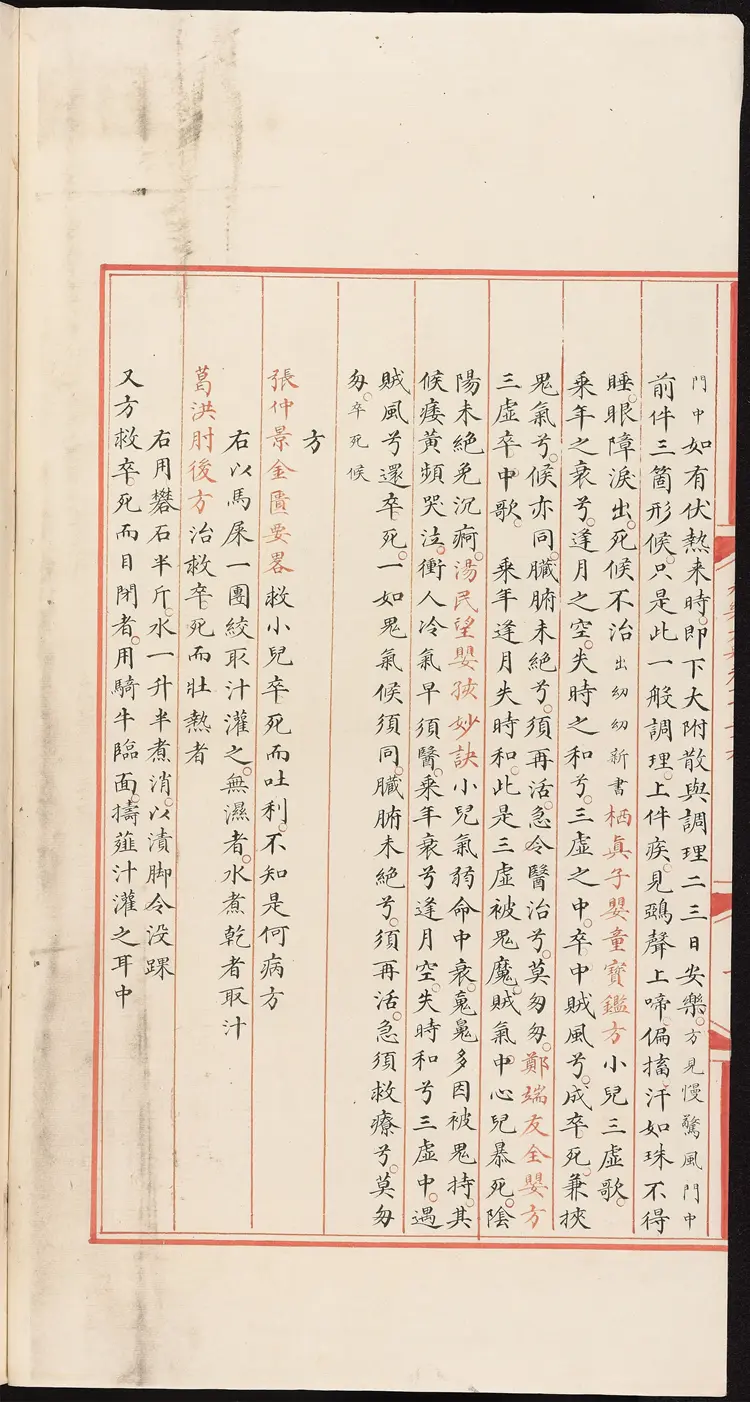 門中如有伏熱来時即下大附散與調理二三日安樂方見慢驚風門中
前件三箇形候只是此一般調理上件疾見鵶聲上啼偏搐汗如珠不得
睡眼障淚出死候不治出幼幼新書栖真子嬰童寶鑑方小兒三虛歌
乗年之衰兮逢月之空失時之和兮三虛之中卒中賊風兮成卒死兼挾
鬼氣兮候亦同臟腑未絶兮須再活急令醫治兮莫匆匆鄭端友全嬰方
三虛卒中歌 乗年逢月失時和此是三虛被鬼魔賊氣中心兒暴死陰
陽未絕免沉痾湯民望嬰孩妙訣小兒氣弱命中衰䰟䰟多因被鬼持其
候痿黄頻哭泣衝人冷氣早須醫乗年衰兮逢月空失時和兮三虛中遇
賊風兮還卒死一如鬼氣候須同臟腑未絶兮須再活急須救療兮莫匆
匆卒死候
方
張仲景金匱要畧救小兒卒死而吐利不知是何病方
右以馬屎一團絞取汁灌之無濕者水煮乾者取汁
葛洪肘後方治救卒死而壯熱者
右用礬石半斤水一升半煮消以漬脚令没踝
又方救卒死而目閉者用騎牛臨面擣薤汁灌之耳中